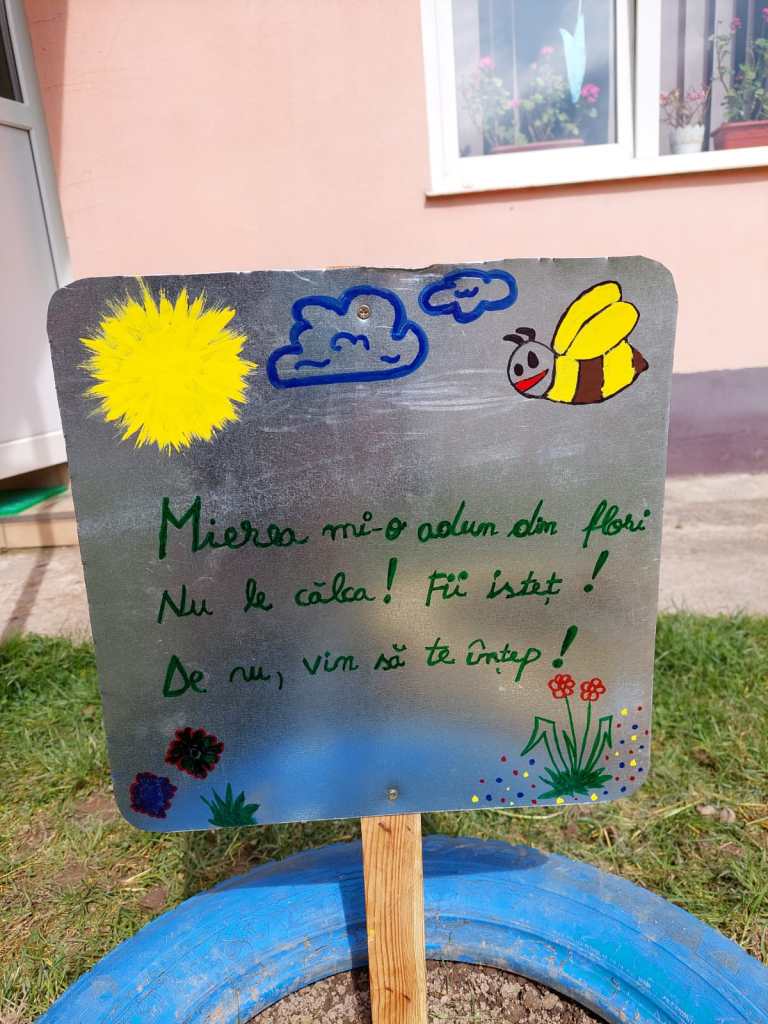 Mierea mi-o adun din flori
Nu le călca! Fii isteț!
De nu, vin să te înțep!